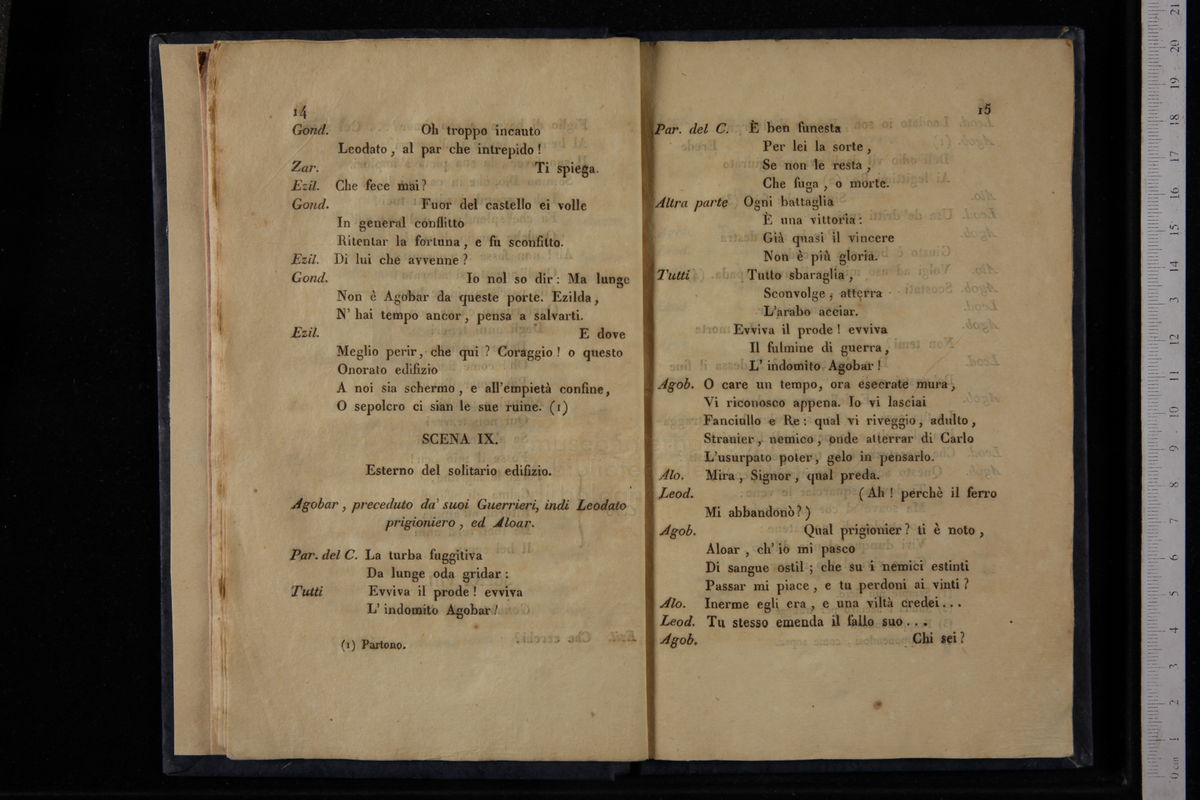 14
Gond. Oh troppo incauto
Leodato, al par che intrepido!
Zar. Ti spiega.
Ezil. Che fece mai?
Gond. Fuor del castello ei volle
In general conflitto
Ritentar la fortuna, e fu sconfitto.
Ezil. Di lui che avvenne?
Gond. Io nol so dir: Ma lunge
Non è Agobar da queste porte. Ezilda,
N' hai tempo ancor, pensa a salvarti.
Ezil. E dove
Meglio perir, che qui? Coraggio! o questo
Onorato edifizio
A noi sia schermo, e all'empietà confine,
O sepolcro ci sian le sue ruine. (1)
SCENA IX.
Esterno del solitario edifizio.
Agobar, preceduto da' suoi Guerrieri, indi Leodato
prigioniero, ed Aloar.
Par. del C. La turba fuggitiva
Da lunge oda gridar:
Tutti Evviva il prode! evviva
L' indomito Agobar!
(1) Partono.
15
Par. del C. È ben funesta
Per lei la sorte,
Se non le resta,
Che fuga, o morte.
Altra parte Ogni battaglia
È una vittoria:
Già quasi il vincere
Non è più gloria.
Tutti Tutto sbaraglia,
Sconvolge, atterra
L'arabo acciar.
Evviva il prode! evviva
Il fulmine di guerra,
L' indomito Agobar!
Agob. O care un tempo, ora esecrate mura,
Vi riconosco appena. Io vi lasciai
Fanciullo e Re: qual vi riveggio, adulto,
Stranier, nemico, onde atterrar di Carlo
L'usurpato poter, gelo in pensarlo.
Alo. Mira, Signor, qual preda.
Leod. (Ah! perchè il ferro
Mi abbandonò?)
Agob. Qual prigionier? ti è noto,
Aloar, ch' io mi pasco
Di sangue ostil; che su i nemici estinti
Passar mi piace, e tu perdoni ai vinti?
Alo. Inerme egli era, e una viltà credei...
Leod. Tu stesso emenda il fallo suo...
Agob. Chi sei?